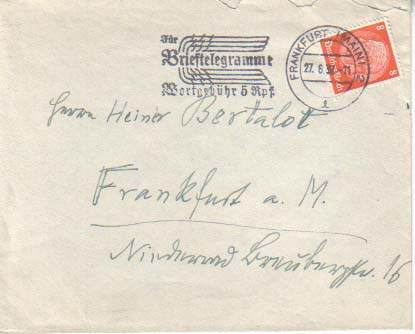 Für
Brieftelegramme
Wortgebühr 5 Rpf
FRANKFURT (MAIN)
27.6.
8 8
Herrn Heiner Bertalot
Frankfurt a. M.
Niederrad Breubergstr. 16